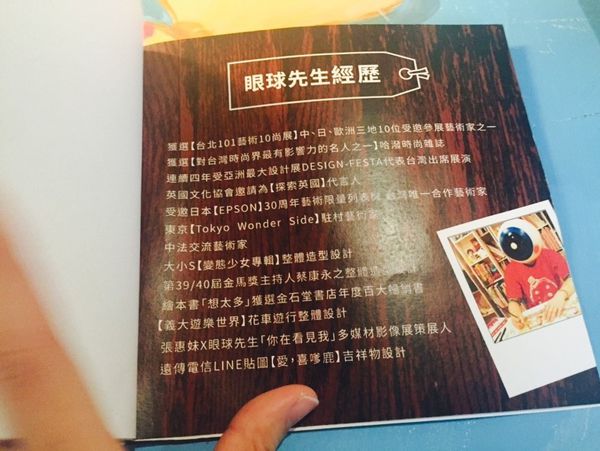 眼球先生經歷
獲選【台北101藝術10尚展】中、日、歐洲三地10位受邀參展藝術家之一
獲選【對台灣時尚界最有影響力的名人之一】哈潑時尚雜誌
連續四年受亞洲最大設計展DESIGN-FESTA代表台灣出席展演
英國文化協會邀請為【探索英國】代言人
受邀日本【EPSON】30周年藝術限量列表機 台灣唯一合作藝術家
東京【Tokyo Wonder Side】駐村藝術家
中法交流藝術家
大小S【變態少女專輯】整體造型設計
第39/40屆金馬獎主持人蔡康永之整體造
繪本書「想太多」獲選金石堂書店年度百大暢銷書
【義大遊樂世界】花車遊行整體設計
張惠妹X眼球先生「你在看見我」多媒材影像展策展人
遠傳電信LINE貼圖【愛，喜嗲鹿】吉祥物設計